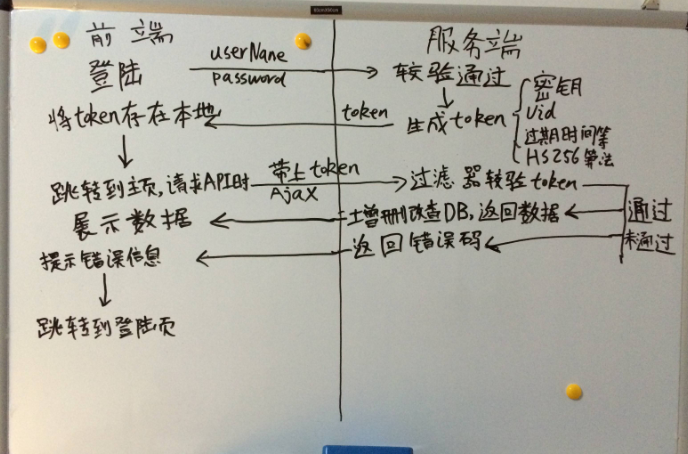 前端
服务端
userName
登陆
password
较验通过
将token存在本地
token
生成token
密钥
uid
过期时间等
HS256算法
跳转到主页,请求API时
带上token
AjaX
过滤器较验token
展示数据
增删改查DB,返回数据
通过
提示错误信息
返回错误码
未通过
跳转到登陆页